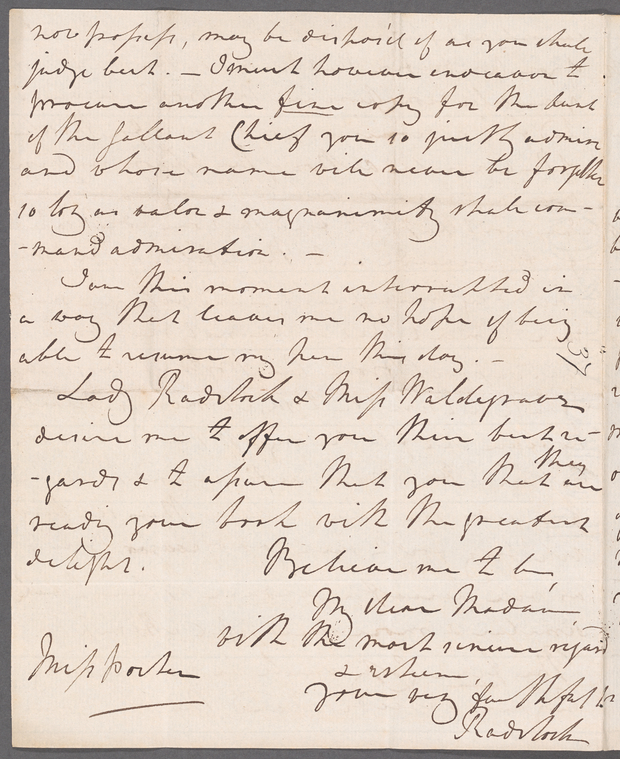 now possess, may be dispos'd of as you shall
judge best. – I must however endeavor to
procure another fine copy for the
of the gallant Chief you so justly admire
and whose name will never be forgotten
so long as valor & magnanimity shall com-
-mand admiration. –
I am this moment interrupted in
a way that leaves me no hope of being
able to resume my pen this day. –
37
Lady Radstock & Miss Waldegrave
desire me to offer you their best re-
-gards & to assure that you that they are
reading your book with the greatest
delight.
Believe me to be
My dear Madam,
with the most sincere regard
& esteem,
your very faithful
Radstock
Miss Porter